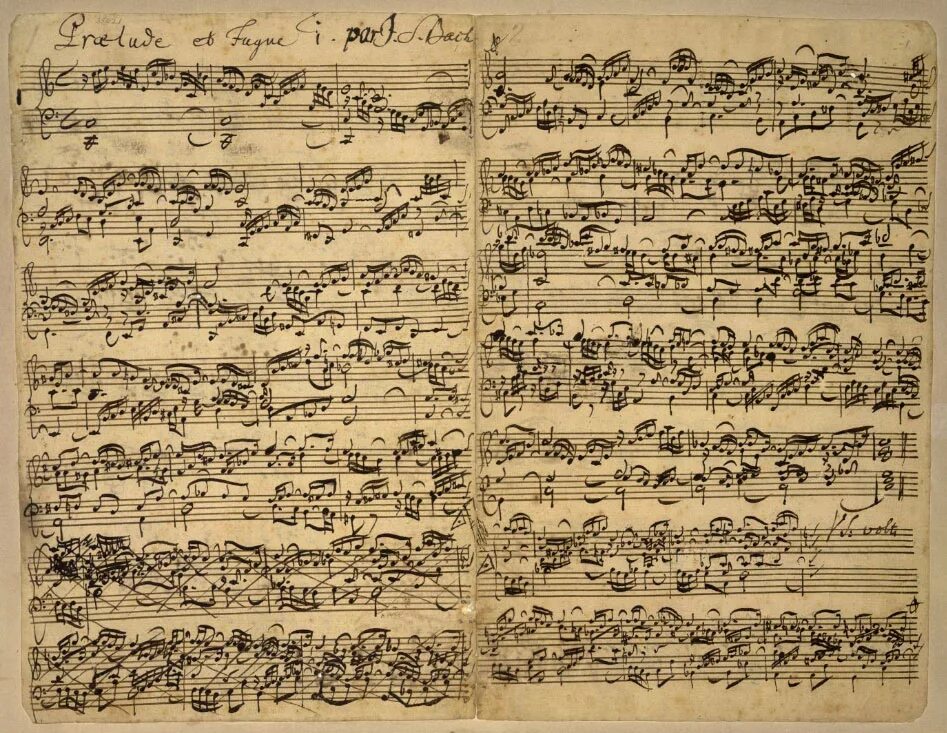 Prælude et Fugue 1. par J. S. Bach
V. volti